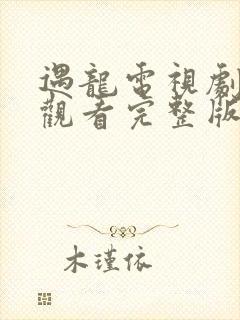 遇龍電視劇
觀看完整版
木瑾依